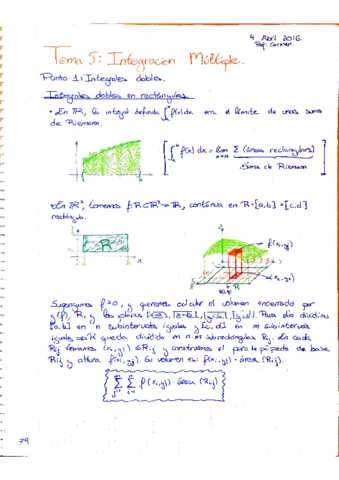 4 Abril 2016.
Prof: Carmen
Tema 5: Integración Múltiple.
Punto 1: Integrales dobles.
Integrales dobles en rectángulos
• En ℝ, la integral definida ∫ₐᵇ f(x) dx era el límite de unas suma
de Riemann.
∫ₐᵇ f(x) dx = lim n→∞ Σ (áreas rectangulares)
Suma de Riemann
• En ℝ², tomemos f: R⊂ℝ² → ℝ, continua en R=[a,b]×[c,d]
rectángulo.
R
f(xᵢ,yⱼ)
(xᵢ,yⱼ)
Supongamos f≥0, y queremos calcular el volumen encerrado por
y los planos
Para ello dividimos
[a,b] en n subintervalos iguales y [c,d] en m subintervalos
iguales ⇒ R queda dividido en n·m subrectángulos Rij. En cada
Rij tomamos (xᵢ,yⱼ) ∈ Rij y construimos el paralelepípedo de base
Rij y altura f(xᵢ,yⱼ). Su volumen es: f(xᵢ,yⱼ)·área (Rij).
Σ Σ f(xᵢ,yⱼ)·área (Rij)
79